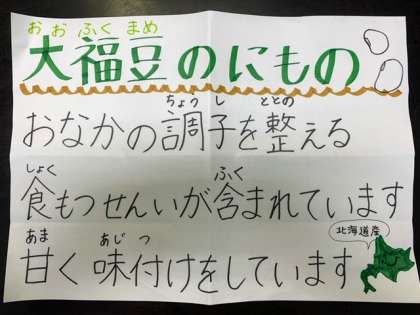 おおふくまめ
大福豆のにもの
ちょうし ととの
おなかの調子を整える
しょく ふく
食もつせんいが含まれています
北海道産
あま あじつ
甘く味付けをしています